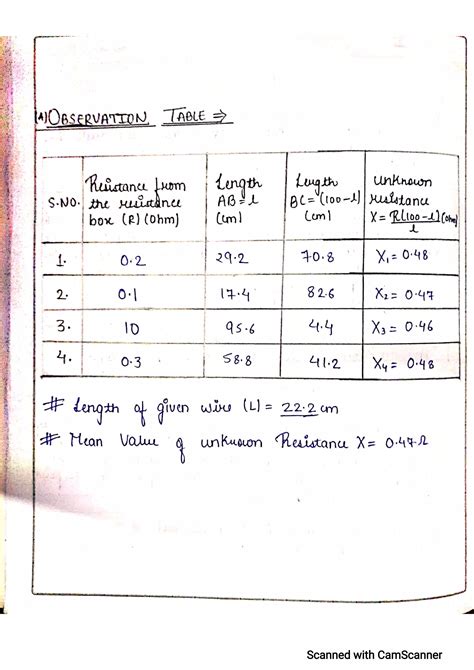 (A) OBSERVATION TABLE ⇒
S.NO. | Resistance from the resistance box (R) (ohm) | Length AB = l (cm) | Length BC = (100-l) (cm) | Unknown resistance X = R(100-l)/l (ohm)
1. | 0.2 | 29.2 | 70.8 | X₁ = 0.48
2. | 0.1 | 17.4 | 82.6 | X₂ = 0.47
3. | 10 | 95.6 | 4.4 | X₃ = 0.46
4. | 0.3 | 58.8 | 41.2 | X₄ = 0.48
# Length of given wire (L) = 22.2 cm
# Mean Value of unknown Resistance X = 0.47 Ω
Scanned with CamScanner